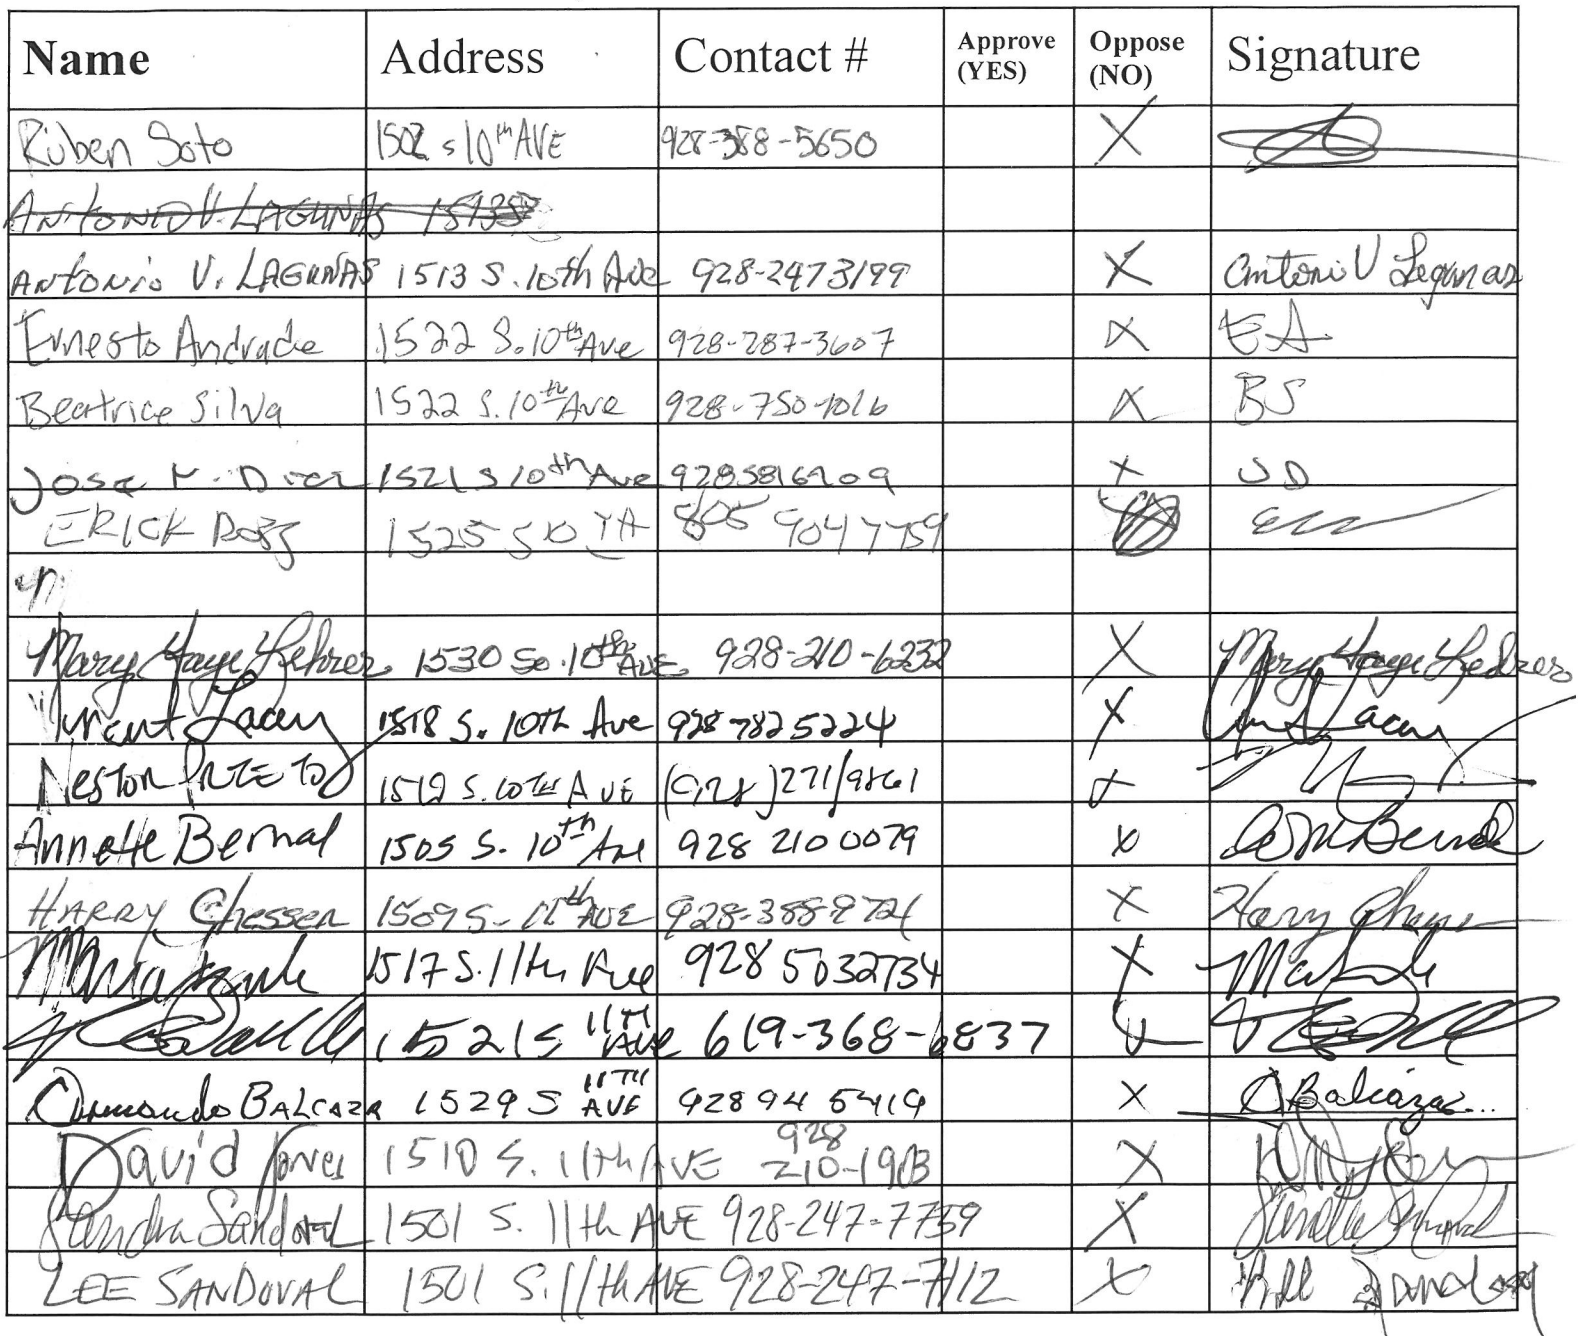 Name Address Contact # Approve (YES) Oppose (NO) Signature
Ruben Soto 1502 S 10th AVE 928-388-5650 X
ANTONIO V. LAGUNAS
ANTONIO V. LAGUNAS 1513 S. 10th Ave 928-2473199 X Antoni V Lagunas
Ernesto Andrade 1522 S. 10th Ave 928-287-3607 X EA
Beatrice Silva 1522 S. 10th Ave 928-750-1016 X BS
Jose 1521 S 10th Ave X JD
ERICK 1525 S 10 TH 805 9047759
Mary Faye Lehrer 1530 So. 10th AVE. 928-210-6232 X Mary Faye Lehrer
Lacey 1518 S. 10th Ave 928 7825224 X Lacey
Nestor PRIETO S. 10TH AVE X
Annette Bernal 1505 S. 10th Ave 928 210 0079 X
HARRY Chesser 1509 S. AVE X Harry
Maria 1517 S. 11th Ave 928 5032734 X
1521 S 11TH AVE 619-368-6837 X
Armando BALCAZR 1529 S 11TH AVE 92894 5419 X A Balcázar...
David Jones 1510 S. 11th AVE 928 X
Sandra Sandoval 1501 S. 11th AVE 928-247-7759 X
LEE SANDOVAL 1501 S. 11th AVE 928-247-7112 X